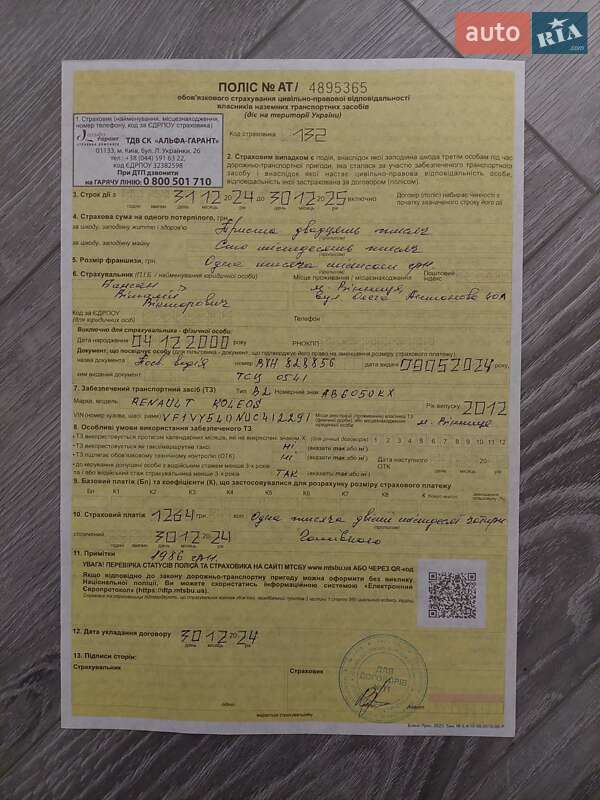 auto RIA .com
ПОЛІС № АТ/ 4895365
обов'язкового страхування цивільно-правової відповідальності
власників наземних транспортних засобів
(діє на території України)
1. Страховик (найменування, місцезнаходження,
номер телефону, код за ЄДРПОУ страховика)
ТДВ СК «АЛЬФА-ГАРАНТ»
01133, м. Київ, бул. Л. Українки, 26
тел.: +38 (044) 591 63 22,
код ЄДРПОУ 32382598
При ДТП дзвонити
на ГАРЯЧУ ЛІНІЮ: 0 800 501 710
Код страховика 132
2. Страховим випадком є подія, внаслідок якої заподіяна шкода третім особам під час
дорожньо-транспортної пригоди, яка сталася за участю забезпеченого транспортного
засобу і внаслідок якої настає цивільно-правова відповідальність особи,
відповідальність якої застрахована за договором (полісом)
3. Строк дії з 31 12 2024 до 30 12 2025 включно
Договір (поліс) набирає чинності з
початку зазначеного строку його дії
4. Страхова сума на одного потерпілого, грн.
за шкоду, заподіяну життю і здоров'ю Триста двадцять тисяч
за шкоду, заподіяну майну Сто шістдесят тисяч
5. Розмір франшизи, грн. Одна тисяча шістсот грн
6. Страхувальник (П.І.Б. / найменування юридичної особи)
Місце проживання / місцезнаходження
Поштовий індекс
Віталій Вікторович
м. Вінниця
Код за ЄДРПОУ
(для юридичних осіб)
Телефон
Виключно для страхувальника - фізичної особи:
Дата народження 04 12 2000 року РНОКПП
назва документа Посв водія номер ВХН 828856 дата видачі 09 05 2024 року,
ким виданий документ ТСЦ 0541
7. Забезпечений транспортний засіб (ТЗ) Тип B2 Номерний знак АВ6050КХ
Марка, модель RENAULT KOLEOS Рік випуску 2012
VIN (номер кузова, шасі, рами) VF1VY5L0NUC412291 м. Вінниця
8. Особливі умови використання забезпеченого ТЗ
• ТЗ використовується протягом календарних місяців, які не викреслені знаком X 1 2 3 4 5 6 7 8 9 10 11 12
• ТЗ використовується як таксі/маршрутне таксі Ні (вказати так або ні)
• ТЗ підлягає обов'язковому технічному контролю (ОТК) Ні (вказати так або ні) Дата наступного ОТК
• до керування допущені особи з водійським стажем менше 3-х років
ТАК (вказати так або ні)
9. Базовий платіж (Бп) та коефіцієнти (К), що застосовувалися для розрахунку розміру страхового платежу
Бп К1 К2 К3 К4 К5 К6 К7 К8
10. Страховий платіж 1264 грн. коп. Одна тисяча двісті шістдесят чотири
сплачений 30 12 2024 Готівкою
11. Примітки 1986 грн.
УВАГА! ПЕРЕВІРКА СТАТУСІВ ПОЛІСА ТА СТРАХОВИКА НА САЙТІ МТСБУ www.mtsbu.ua АБО ЧЕРЕЗ QR-код
Якщо відповідно до закону дорожньо-транспортну пригоду можна оформити без виклику
Національної поліції, Ви можете скористатись інформаційною системою «Електронний
Європротокол» (https://dtp.mtsbu.ua).
12. Дата укладання договору 30 12 2024
день місяць року
13. Підписи сторін:
Страхувальник
Страховик
ДЛЯ ДОГОВОРІВ
видається страхувальникові